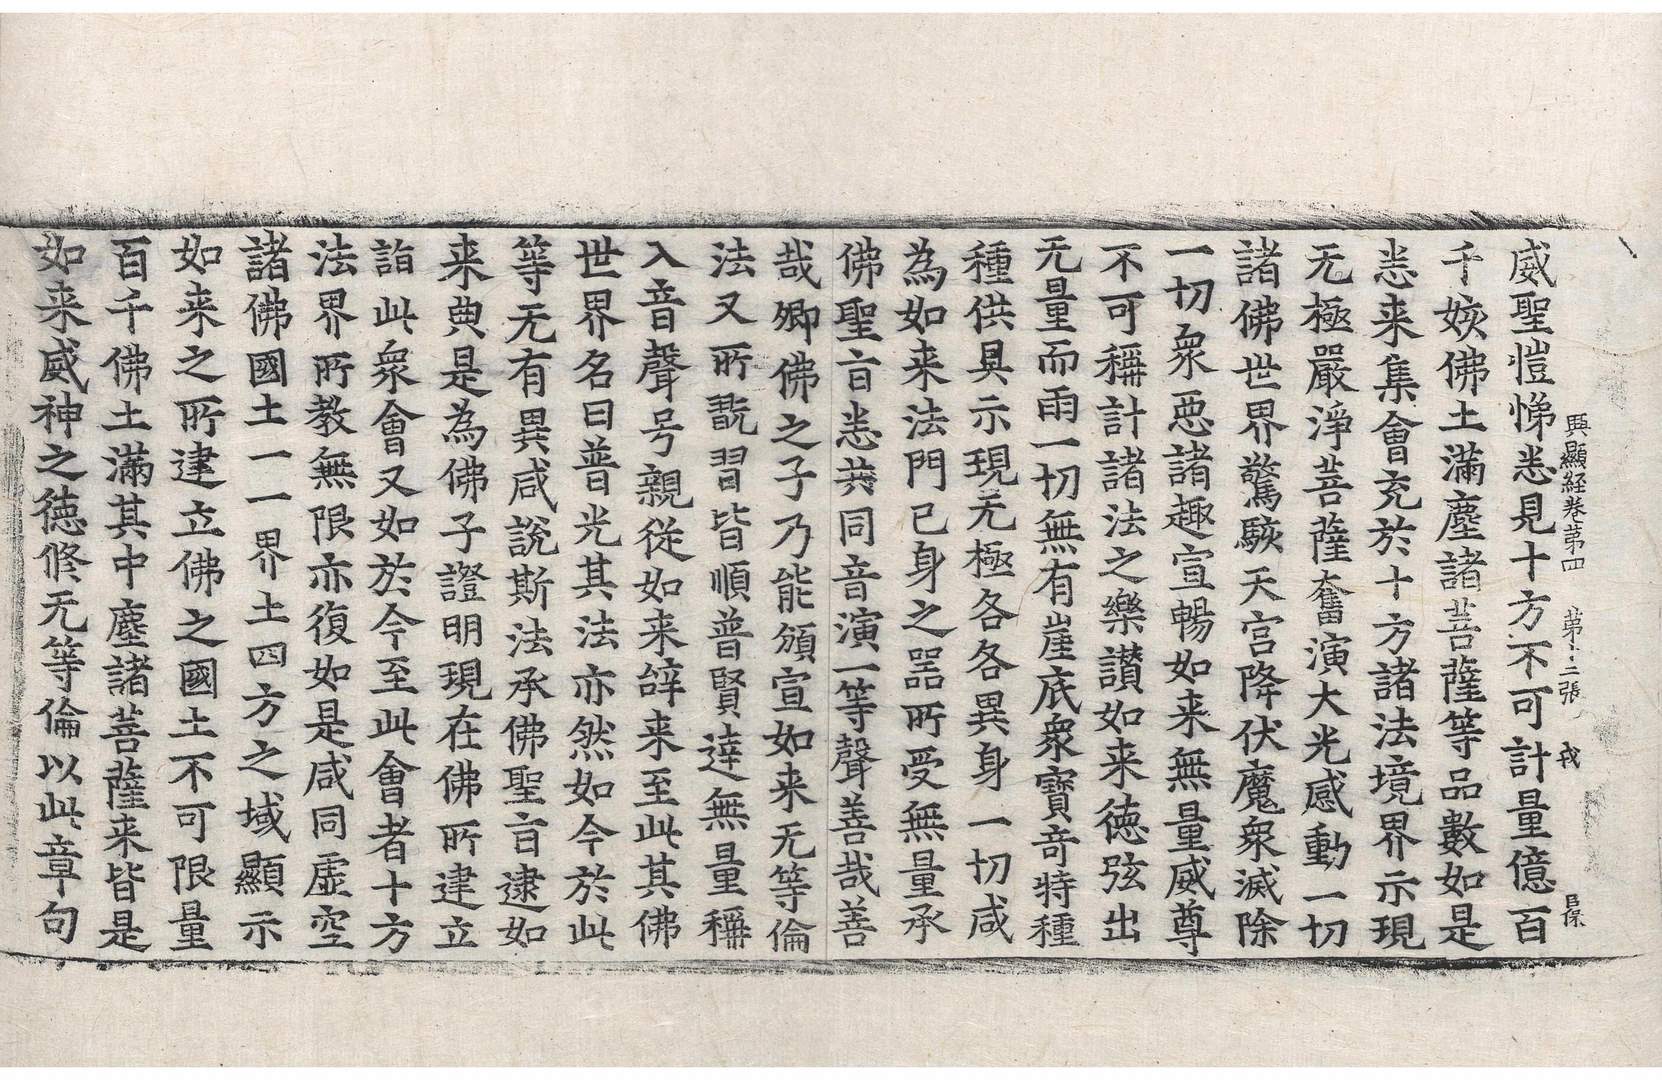 興顯経卷苐四 苐十二張 戎 巨保
威聖愷悌悉見十方不可計量億百
千姟佛土滿塵諸菩薩等品數如是
悉来集會充於十方諸法境界示現
无極嚴淨菩薩奮演大光感動一切
諸佛世界驚駭天宮降伏魔衆滅除
一切衆惡諸趣宣暢如来無量威尊
不可稱計諸法之樂讃如来徳弦出
无量而雨一切無有崖底衆寶奇特種
種供具示現无極各各異身一切咸
為如来法門已身之器所受無量承
佛聖旨悉共同音演一等聲善哉善
哉卿佛之子乃能頒宣如来无等倫
法又所翫習皆順普賢達無量稱
入音聲号親從如来辤来至此其佛
世界名曰普光其法亦然如今於此
等无有異咸説斯法承佛聖旨逮如
来典是為佛子證明現在佛所建立
詣此衆會又如於今至此會者十方
法界所教無限亦復如是咸同虛空
諸佛國土一一界土四方之域顯示
如来之所建立佛之國土不可限量
百千佛土滿其中塵諸菩薩来皆是
如来威神之徳修无等倫以此章句